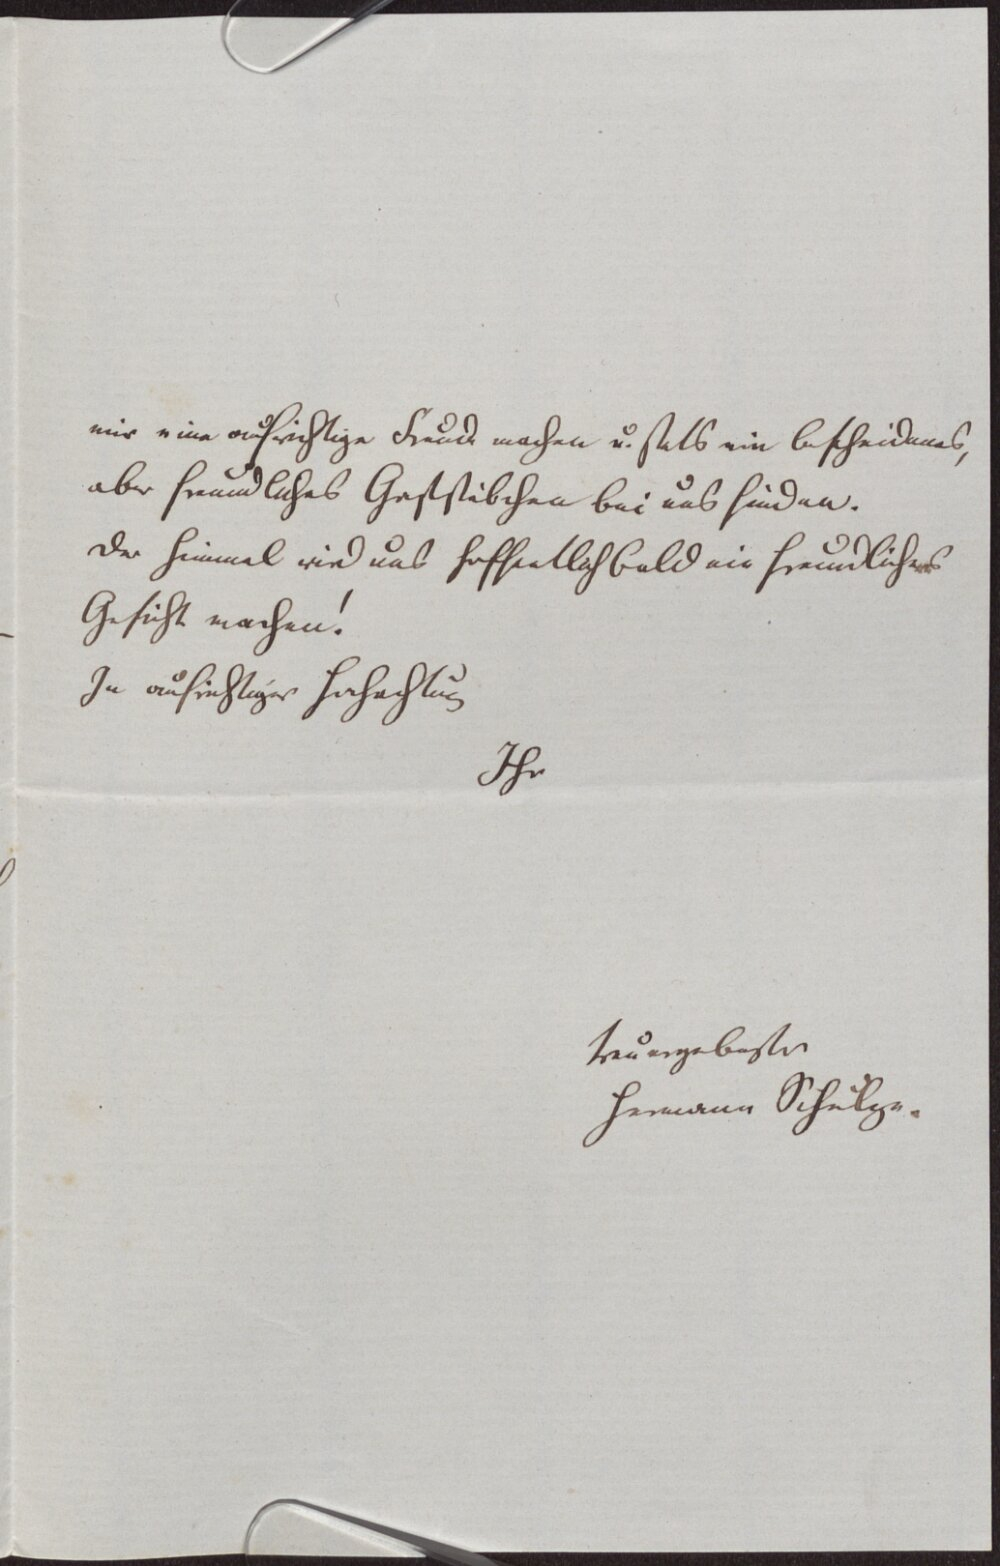 mir eine aufrichtige Freude machen u. stets ein bescheidenes,
aber freundliches Gaststübchen bei uns finden.
Der Himmel wird uns hoffentlich bald ein freundlicheres
Gesicht machen!
In aufrichtiger Hochachtung
Ihr
treuergebenster
Hermann Schulze.